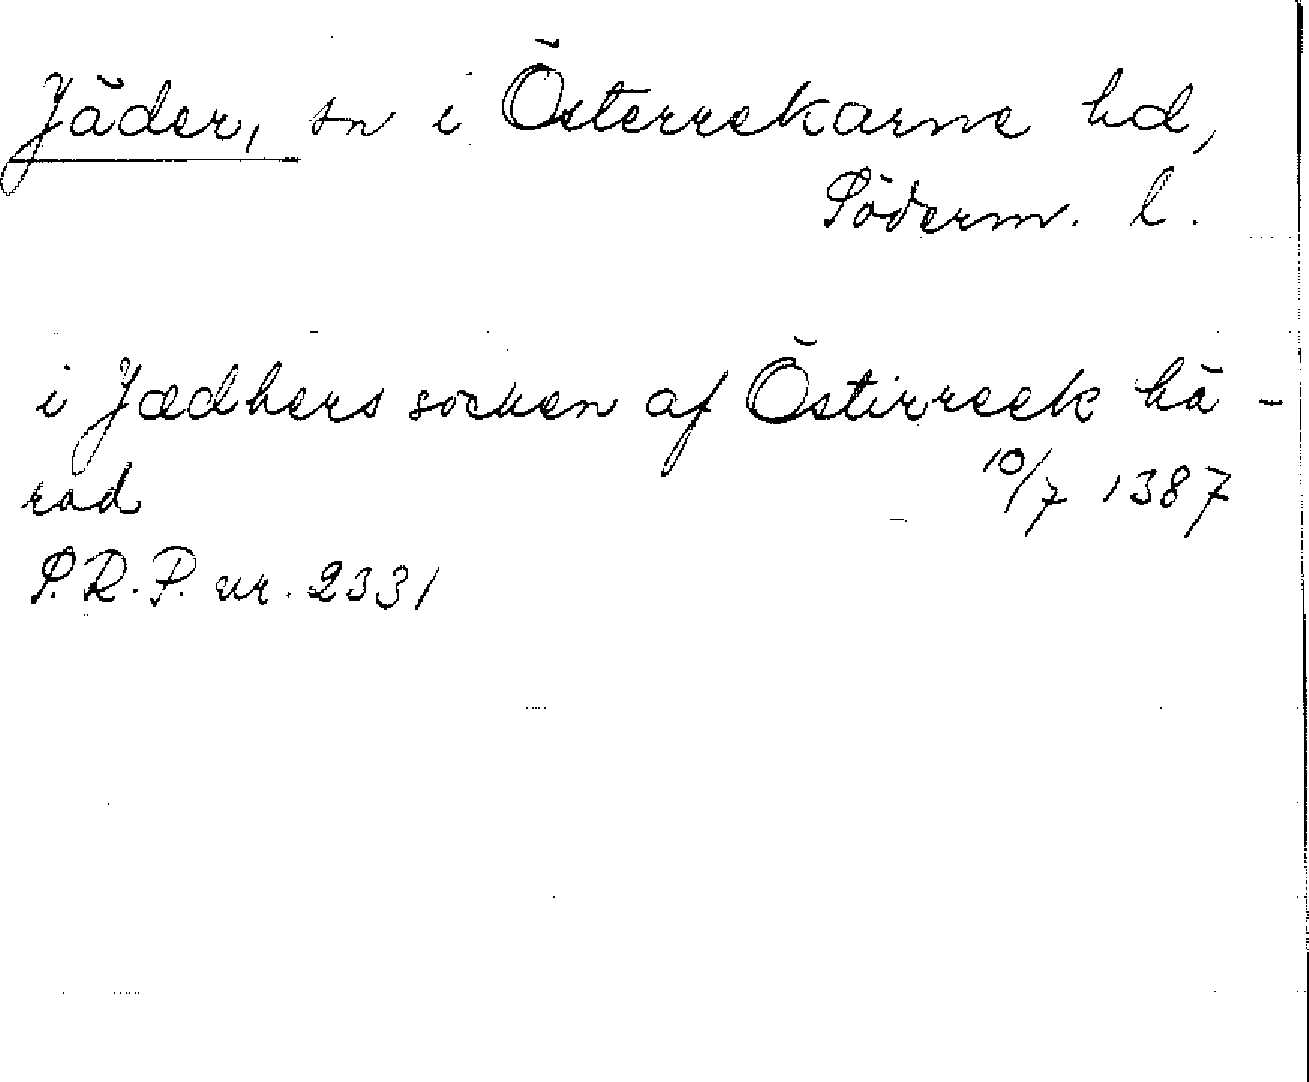 Jäder, sn i Österrekarne hd,
Söderm. l.
i Jædhers socken af Östirreek hä-
rad 10/7 1387
S.R.P. nr. 2331